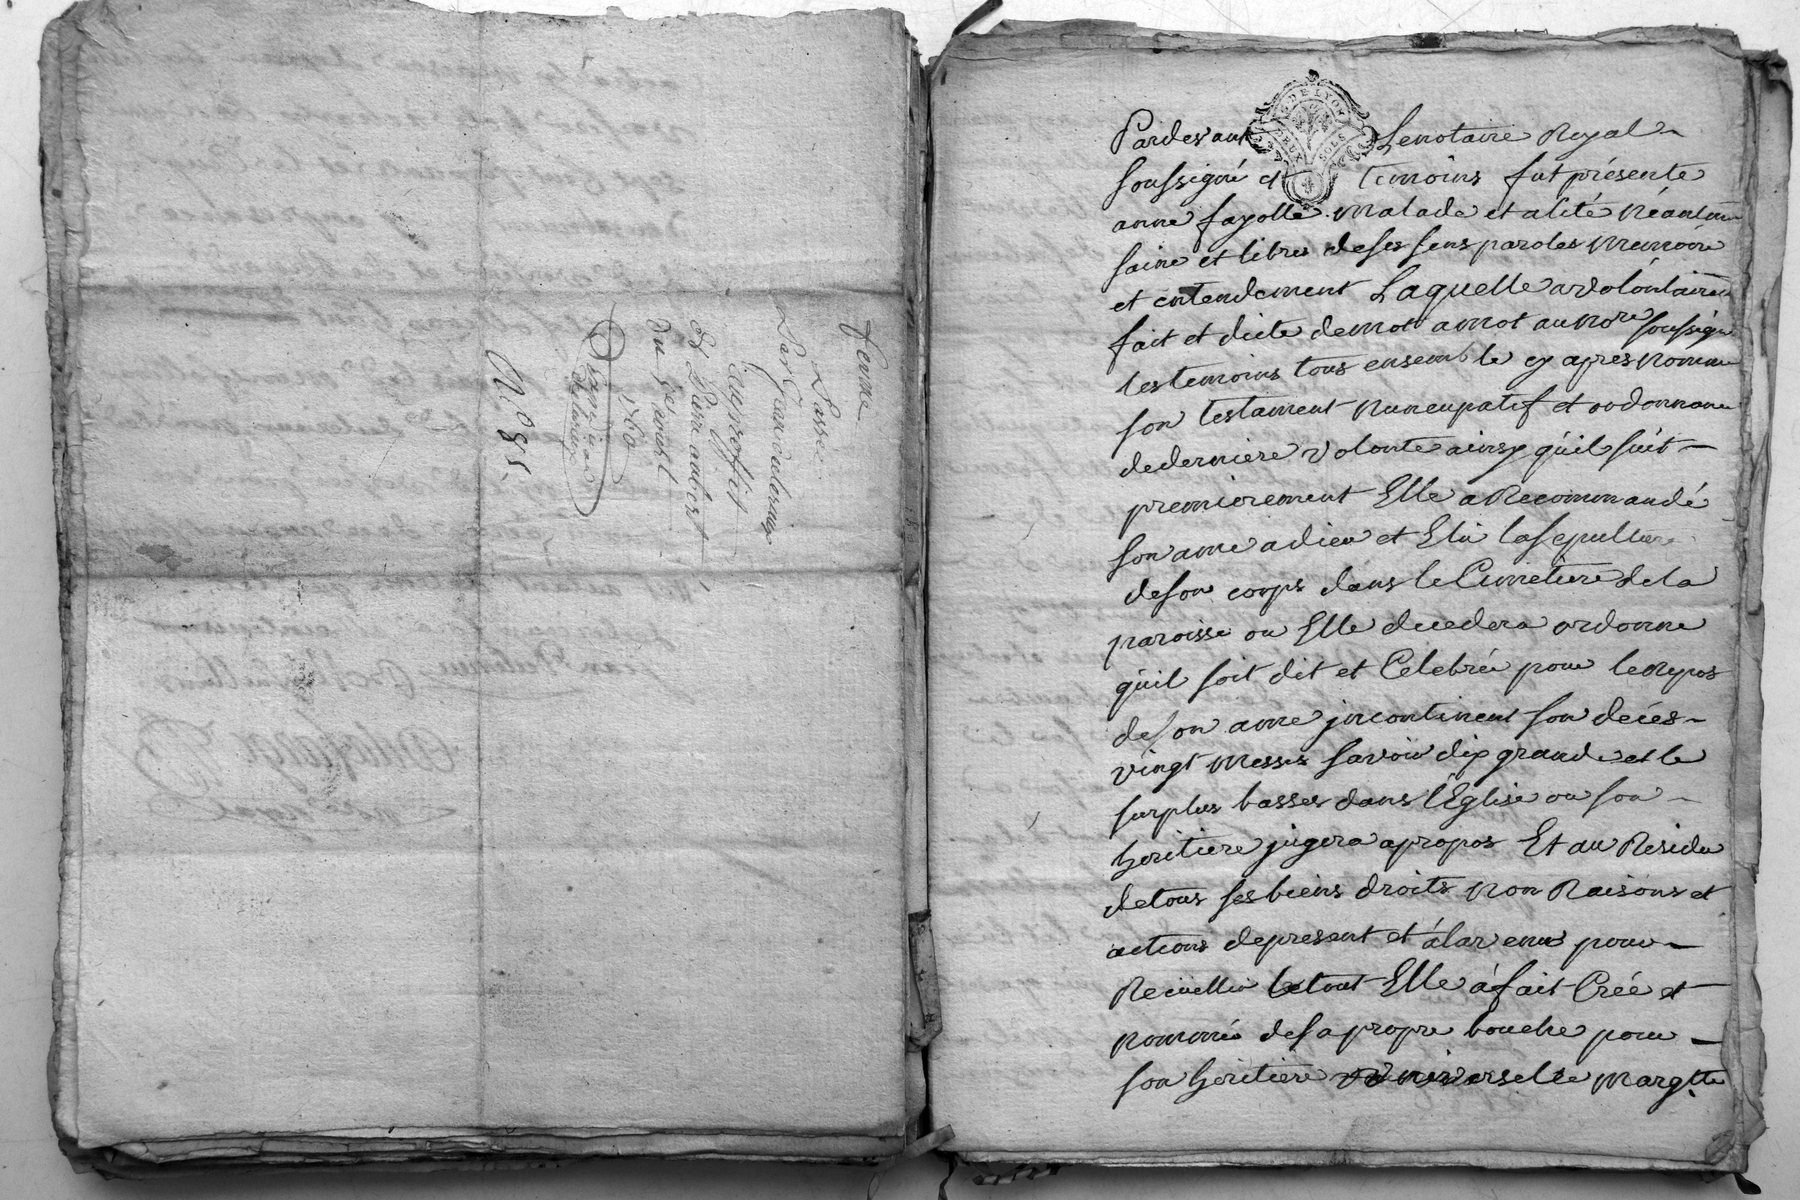 ferme
Passée
Par Jean
au proffit
et Pierre aubert
Du 5e aoust
1760
N.° 85.
DE LYON
DEUX SOLS
Pardevant Le notaire Royal
soussigné et temoins fut présente
anne fayolle malade et alité néantm
saine et libres de ses sens paroles memoire
et entendement Laquelle a volontairem
fait et dicté de mot a mot au nore soussigné
les temoins tous ensemble cy apres nommé
son testament nuncupatif et ordonnance
de derniere volonté ainsy qu'il suit
premierement Elle a Recommandé
son ame a dieu et Elu la sepulture
de son corps dans le Cimetiere de la
paroisse ou Elle decedera ordonne
qu'il soit dit et Celebrée pour le Repos
de son ame incontinent son deces
vingt messes savoir dix grande et le
surplus basses dans l'Eglise ou son
heritiere jugera apropos Et au Residu
de tous ses biens droits nom Raisons et
actions de present et à l'avenir pour
Recüellir le tout Elle à fait Créé et
nommé de sa propre bouche pour
son heritiere universelle margtte